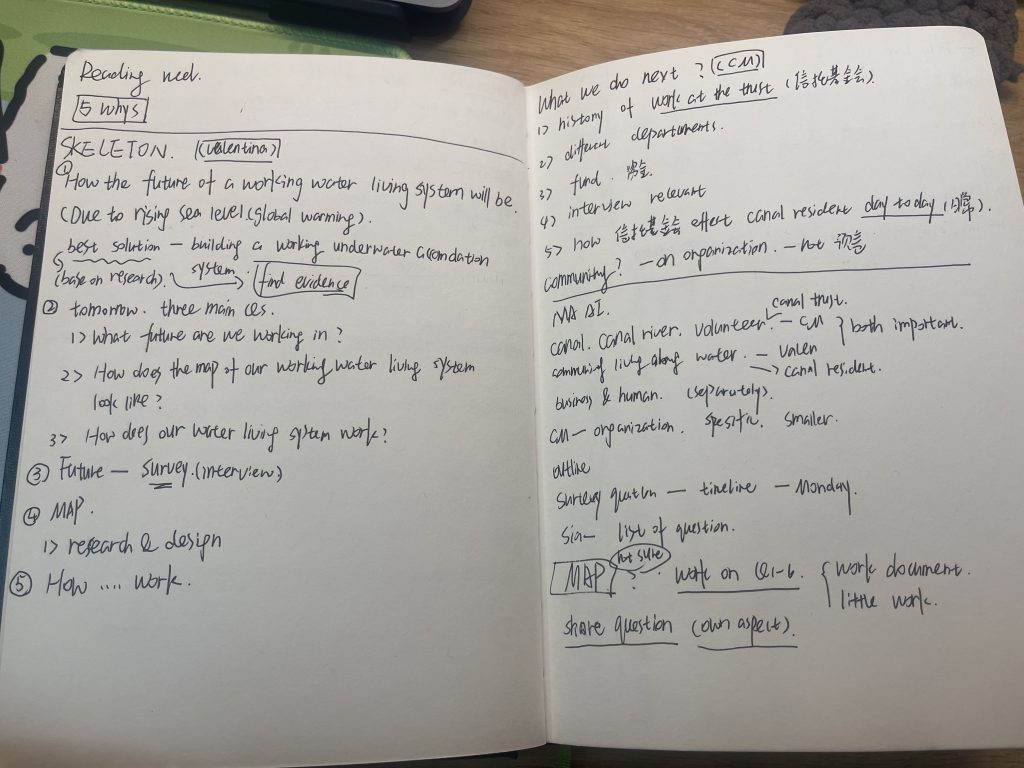 Reading need.
5 whys
SKELETON. (Valentina)
① How the future of a working water living system will be.
(Due to rising sea level (global warming).
best solution — building a working underwater
(base on research). system find evidence
② tomorrow. three main Qs.
1> What future are we working in ?
2> How does the map of our working water living system
look like ?
3> How does our water living system work?
③ Future — survey. (interview)
④ MAP.
1> research & design
⑤ How .... work.
What we do next ? (CM)
1> history of work at the trust (信托基金会)
2> different departments.
3> fund.
4> interview relevant
5> how 信托基金会 effect canal resident day to day (日常).
community? — on organization. — not
MA AI.
canal. canal river. volunteer. — CM } both important.
canal trust.
living along water. — Valen
—> canal resident.
business & human. (separately).
CM — organization. spesific. smaller.
outline
— timeline — Monday.
list of question.
MAP ? not sure work on Q1-6 { work document.
little work.
share question (own aspect).